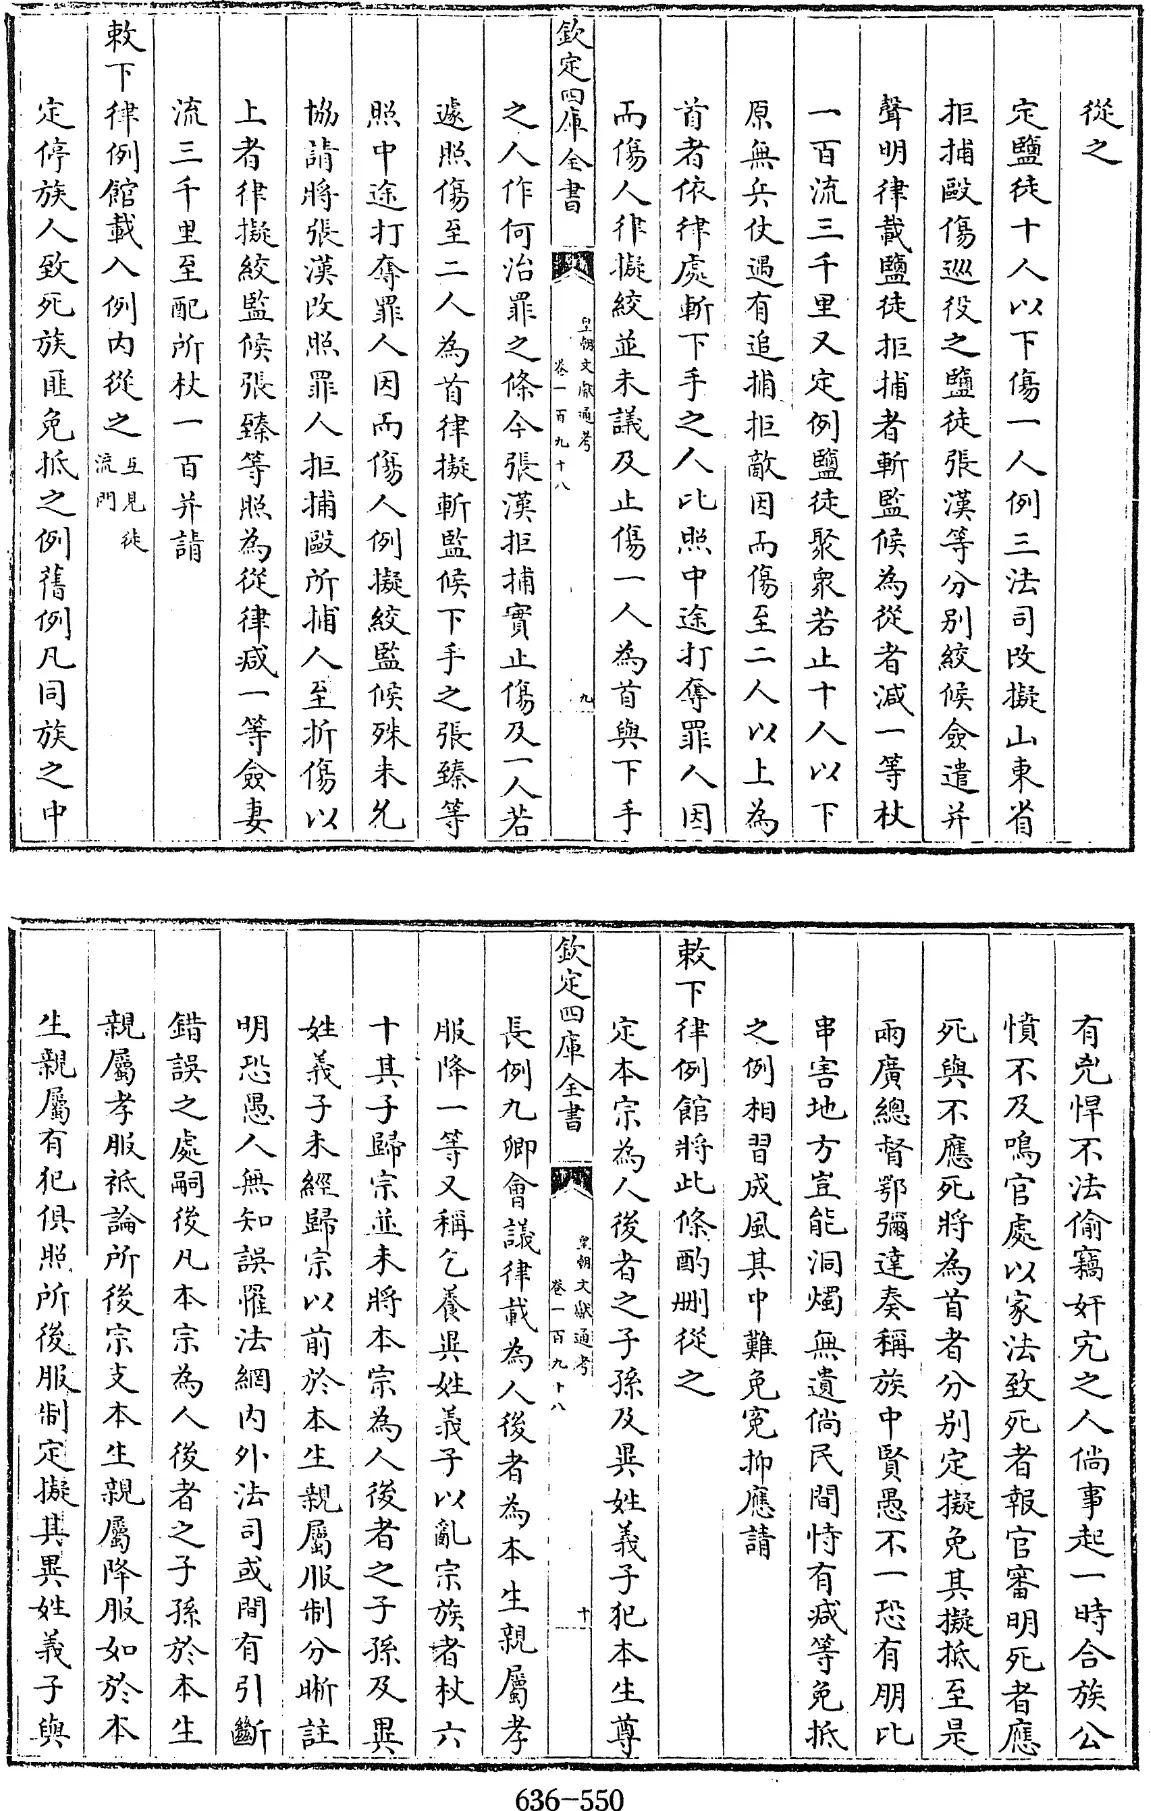 從之
定鹽徒十人以下傷一人例三法司改擬山東省
拒捕毆傷巡役之鹽徒張漢等分别絞候僉遣并
聲明律載鹽徒拒捕者斬監候為從者減一等杖
一百流三千里又定例鹽徒聚衆若止十人以下
原無兵仗遇有追捕拒敵因而傷至二人以上為
首者依律處斬下手之人比照中途打奪罪人因
而傷人律擬絞並未議及止傷一人為首與下手
欽定四庫全書
皇朝文獻通考
卷一百九十八
九
之人作何治罪之條今張漢拒捕實止傷及一人若
遽照傷至二人為首律擬斬監候下手之張臻等
照中途打奪罪人因而傷人例擬絞監候殊未允
協請將張漢改照罪人拒捕毆所捕人至折傷以
上者律擬絞監候張臻等照為從律减一等僉妻
流三千里至配所杖一百并請
敕下律例館載入例内從之
互見徒
流門
定停族人致死族匪免抵之例舊例凡同族之中
有兇悍不法偷竊奸宄之人倘事起一時合族公
憤不及鳴官處以家法致死者報官審明死者應
死與不應死將為首者分别定擬免其擬抵至是
兩廣總督鄂彌達奏稱族中賢愚不一恐有朋比
串害地方豈能洞燭無遺倘民間恃有减等免抵
之例相習成風其中難免寃抑應請
敕下律例館將此條酌刪從之
定本宗為人後者之子孫及異姓義子犯本生尊
欽定四庫全書
皇朝文獻通考
卷一百九十八
十
長例九卿會議律載為人後者為本生親屬孝
服降一等又稱乞養異姓義子以亂宗族者杖六
十其子歸宗並未將本宗為人後者之子孫及異
姓義子未經歸宗以前於本生親屬服制分晰註
明恐愚人無知誤罹法網内外法司或間有引斷
錯誤之處嗣後凡本宗為人後者之子孫於本生
親屬孝服祗論所後宗支本生親屬降服如於本
生親屬有犯俱照所後服制定擬其異姓義子與
636-550